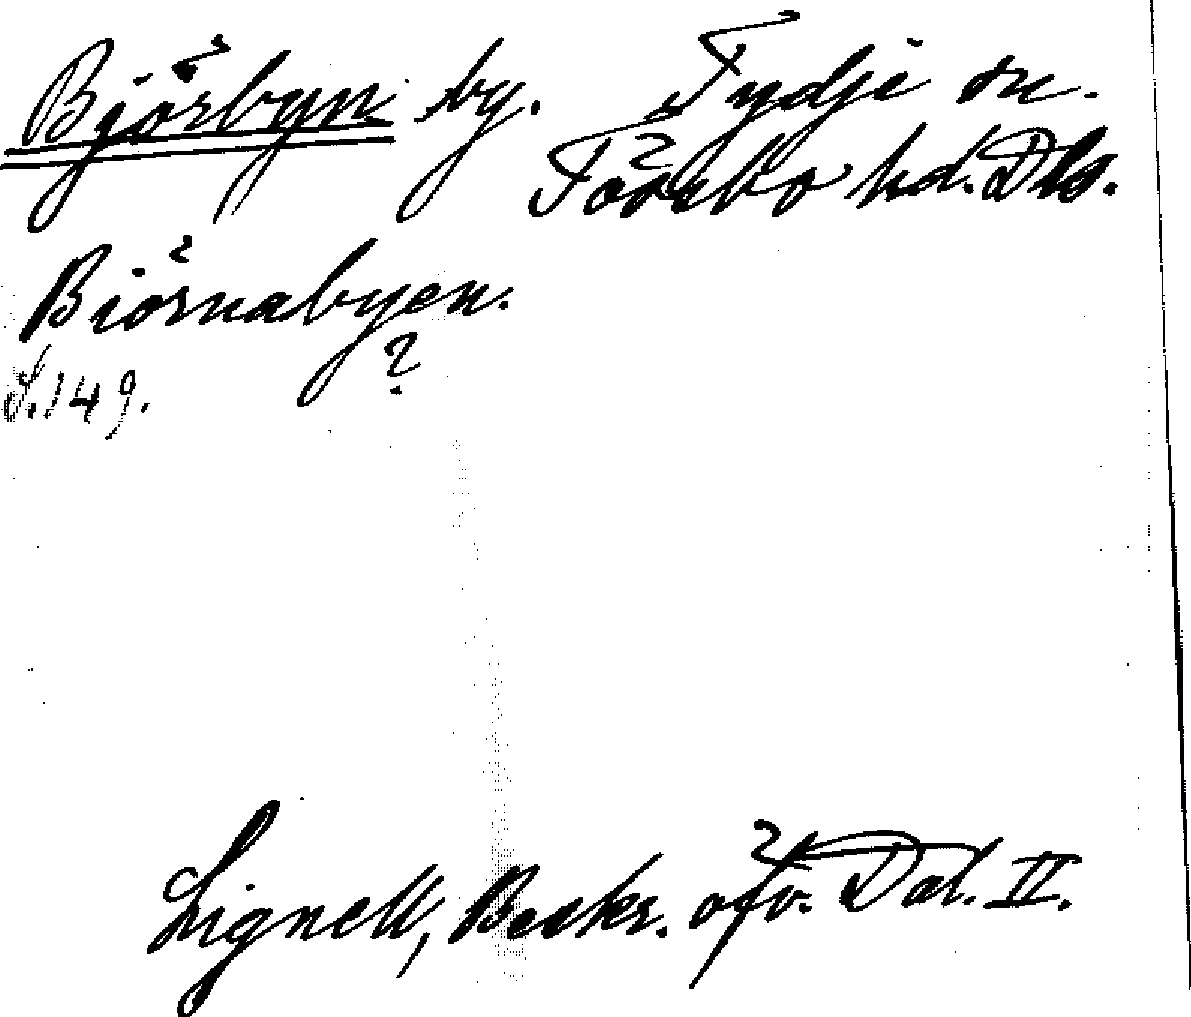 Björbyn by. Tydje sn.
Tössbo hd. Dls.
Biörnabyen.
?
S. 149.
Lignell, Beskr. öfv. Dal. II.